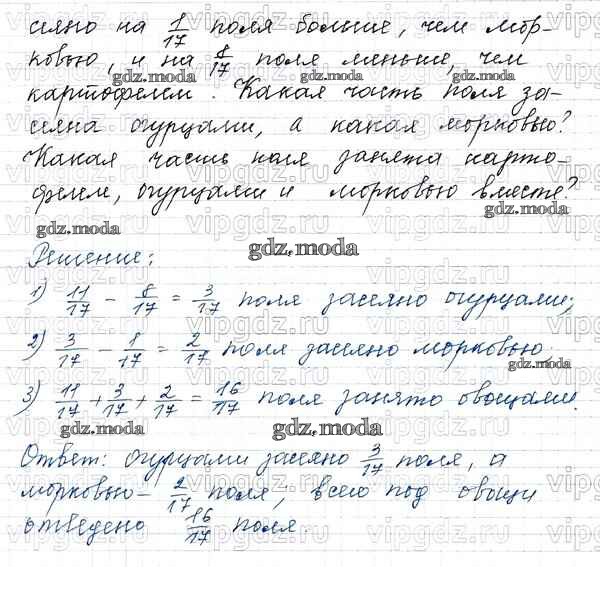 сияно на 1/17 поля больше, чем мор-
ковью, и на 8/17 поля меньше, чем
картофелем. Какая часть поля за-
сеяна огурцами, а какая морковью?
Какая часть поля занята карто-
фелем, огурцами и морковью вместе?
gdz.moda
Решение:
1) 11/17 - 8/17 = 3/17 поля засеяно огурцами;
2) 3/17 - 1/17 = 2/17 поля засеяно морковью;
3) 11/17 + 3/17 + 2/17 = 16/17 поля занято овощами.
gdz.moda
Ответ: огурцами засеяно 3/17 поля, а
морковью - 2/17 поля; всего под овощи
отведено 16/17 поля.
vipgdz.ru